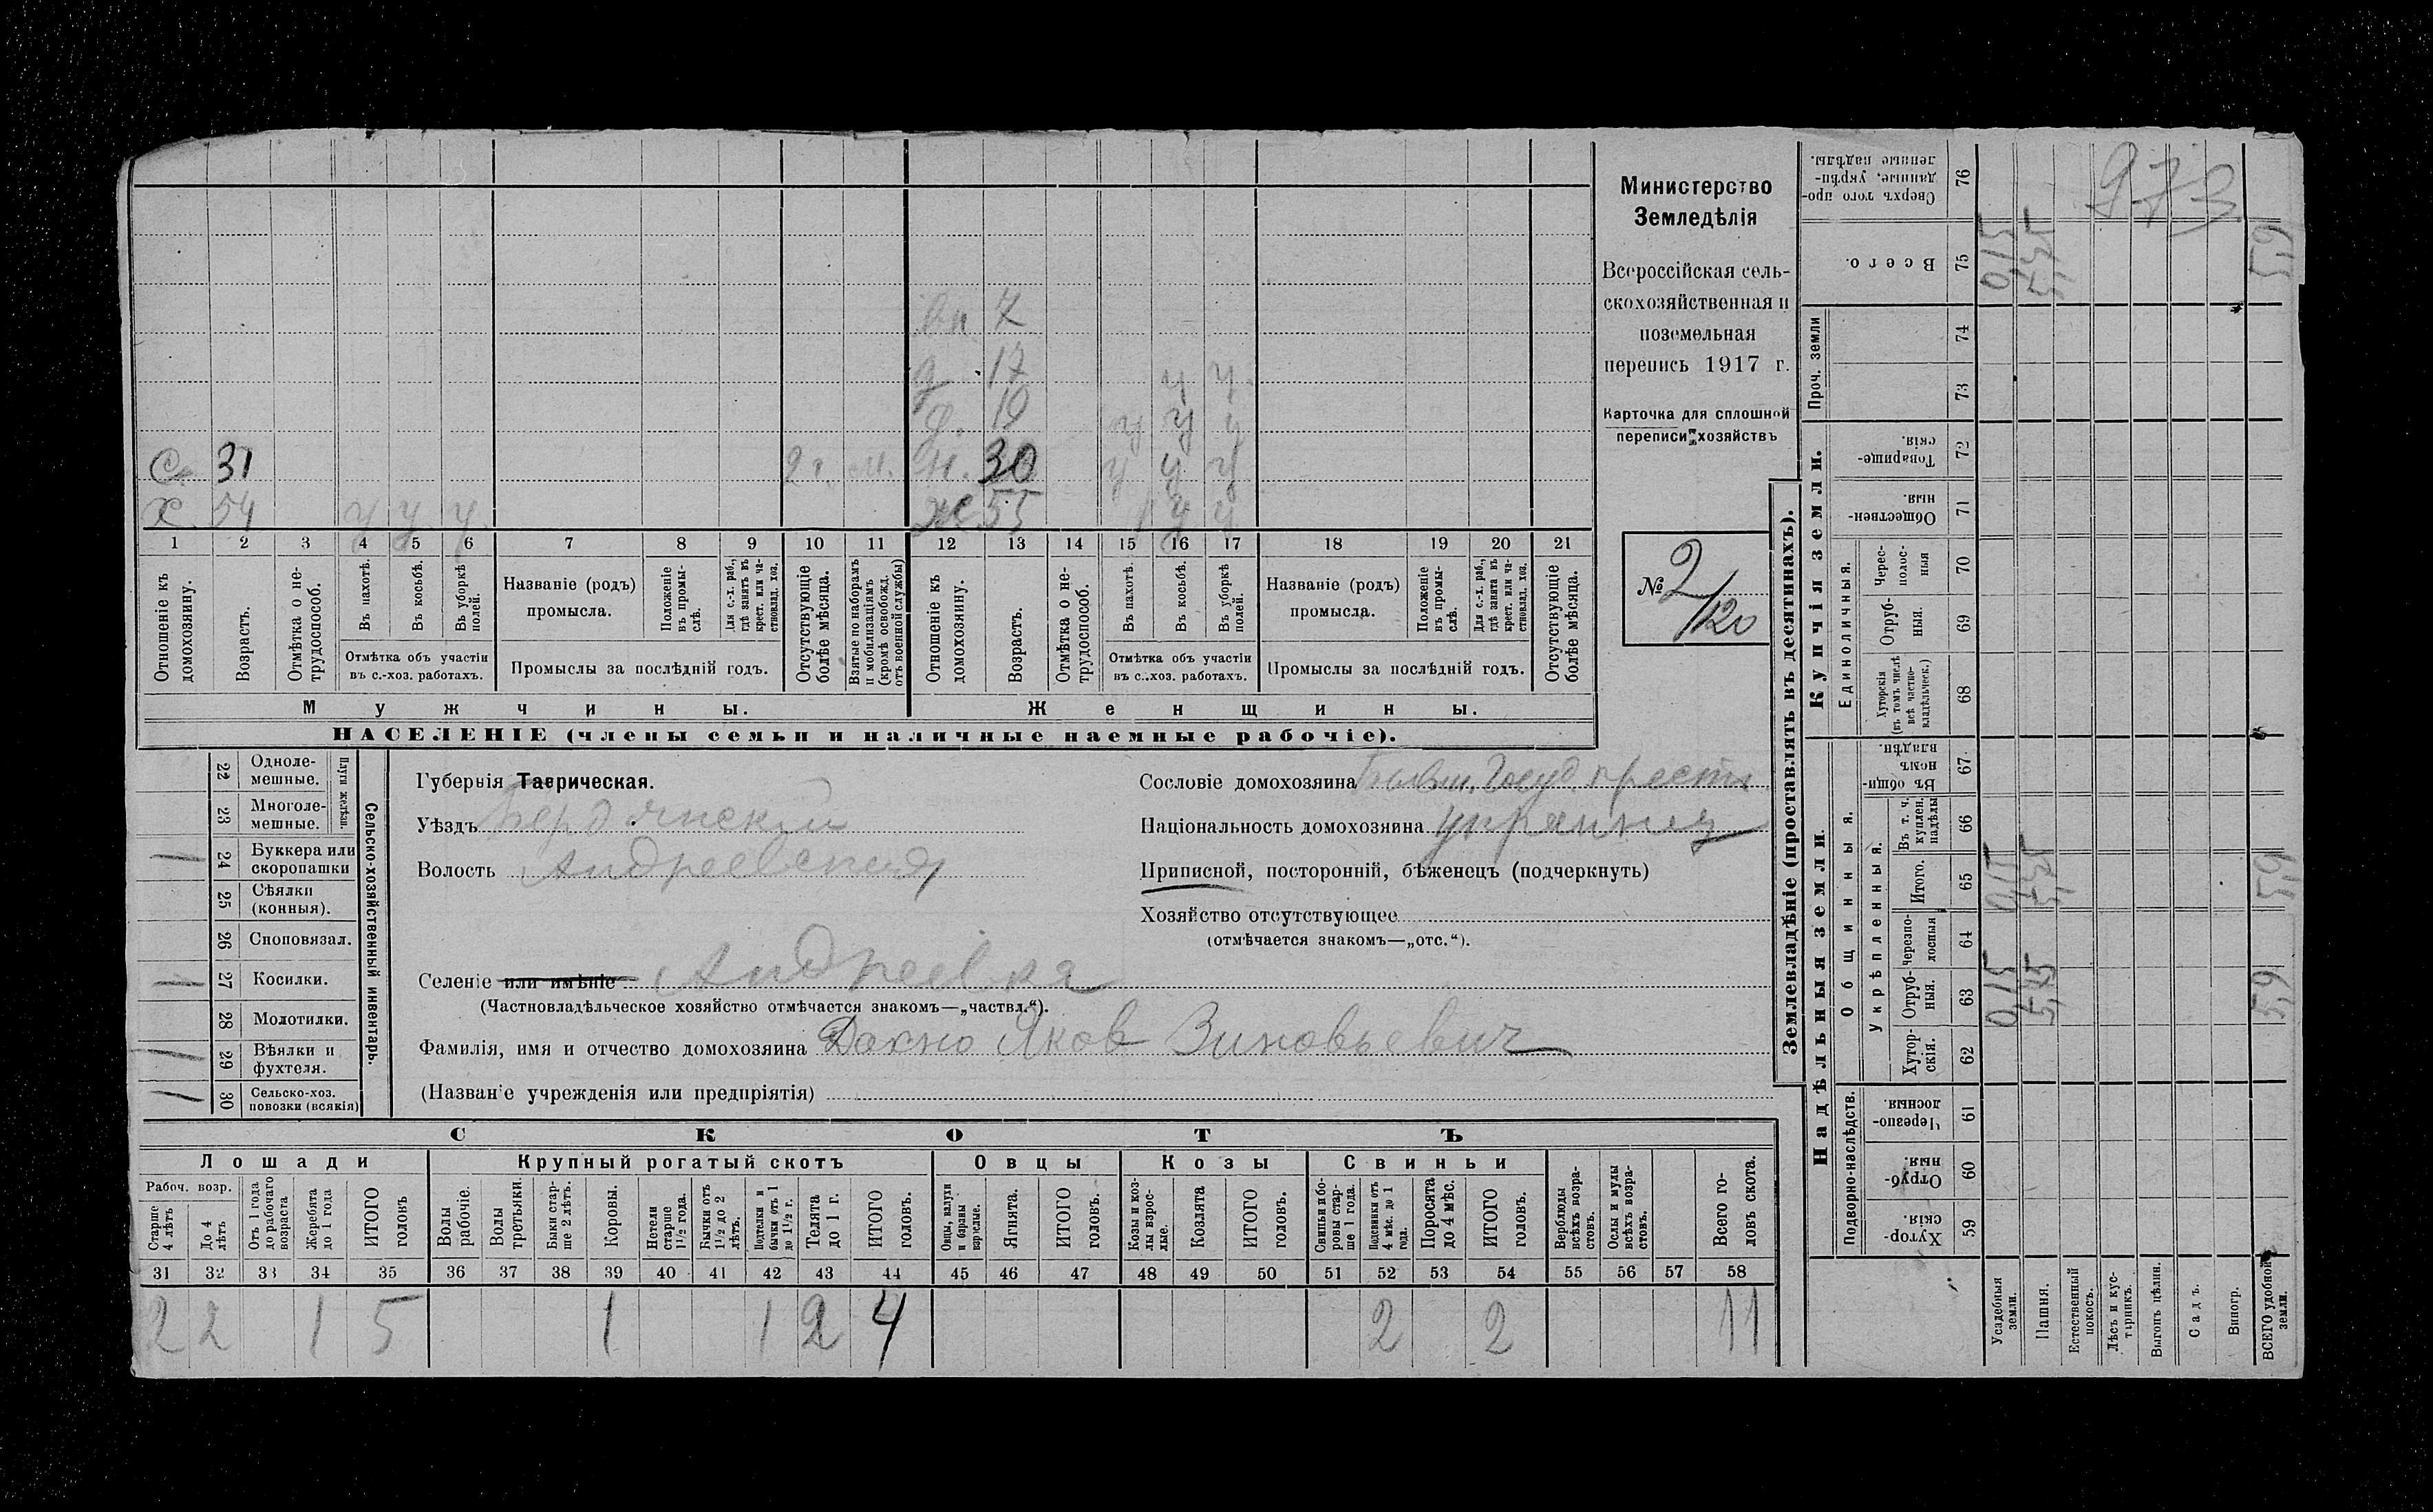 Министерство
Земледѣлія
Всероссійская сель-
скохозяйственная и
поземельная
перепись 1917 г.
Карточка для сплошной
переписи хозяйствъ
№ 2/120
Вн 7
д. 17 у у
д. 19 у у у
С. 31 2 г. м. н. 30 у у у
Х. 54 у у у ж. 55 у у
1 2 3 4 5 6 7 8 9 10 11 12 13 14 15 16 17 18 19 20 21
Отношеніе къ домохозяину.
Возрастъ.
Отмѣтка о не-трудоспособ.
Въ пахотѣ.
Въ косьбѣ.
Въ уборкѣ полей.
Отмѣтка объ участіи
въ с.-хоз. работахъ.
Названіе (родъ)
промысла.
Положеніе въ промы-слѣ.
Для с.-х. раб., гдѣ занятъ въ крест. или ча-стновлад. хоз.
Промыслы за послѣдній годъ.
Отсутствующіе болѣе мѣсяца.
Взятые по наборамъ и мобилизаціямъ (кромѣ освобожд. отъ военной службы)
Отношеніе къ домохозяину.
Возрастъ.
Отмѣтка о не-трудоспособ.
Въ пахотѣ.
Въ косьбѣ.
Въ уборкѣ полей.
Отмѣтка объ участіи
въ с.-хоз. работахъ.
Названіе (родъ)
промысла.
Положеніе въ промы-слѣ.
Для с.-х. раб., гдѣ занята въ крест. или ча-стновлад. хоз.
Промыслы за послѣдній годъ.
Отсутствующіе болѣе мѣсяца.
Мужчины.
Женщины.
НАСЕЛЕНІЕ (члены семьи и наличные наемные рабочіе).
Сельско-хозяйственный инвентарь.
Плуги желѣзн.
22 Одноле-мешные.
23 Многоле-мешные.
1 24 Буккера или скоропашки
25 Сѣялки (конныя).
26 Сноповязал.
1 27 Косилки.
28 Молотилки.
1 29 Вѣялки и фухтеля.
1 30 Сельско-хоз. повозки (всякія)
Губернія Таврическая.
Уѣздъ Бердянский
Волость Андреевская
Селеніе или имѣніе Андреевка
(Частновладѣльческое хозяйство отмѣчается знакомъ—„частвл.“).
Фамилія, имя и отчество домохозяина Дахно Яков Зиновьевич
(Названіе учрежденія или предпріятія)
Сословіе домохозяина Бывш. Госуд. крестн
Національность домохозяина украинец
Приписной, посторонній, бѣженецъ (подчеркнуть)
Хозяйство отсутствующее
(отмѣчается знакомъ—„отс.“).
СКОТЪ
Лошади
Крупный рогатый скотъ
Овцы
Козы
Свиньи
Рабоч. возр.
Старше 4 лѣтъ
До 4 лѣтъ
Отъ 1 года до рабочаго возраста
Жеребята до 1 года
ИТОГО головъ
Волы рабочіе.
Волы третьяки.
Быки стар-ше 2 лѣтъ.
Коровы.
Нетели старше 1½ года.
Бычки отъ 1½ до 2 лѣтъ.
Подтелки и бычки отъ 1 до 1½ г.
Телята до 1 г.
ИТОГО головъ.
Овцы, валухи и бараны взрослые.
Ягнята.
ИТОГО головъ.
Козы и коз-лы взрос-лые.
Козлята
ИТОГО головъ.
Свиньи и бо-ровы стар-ше 1 года.
Подсвинки отъ 4 мѣс. до 1 года.
Поросята до 4 мѣс.
ИТОГО головъ.
Верблюды всѣхъ возра-стовъ.
Ослы и мулы всѣхъ возра-стовъ.
Всего го-ловъ скота.
31 32 33 34 35 36 37 38 39 40 41 42 43 44 45 46 47 48 49 50 51 52 53 54 55 56 57 58
2 2 1 5 1 1 2 4 2 2 11
Землевладѣніе (проставлять въ десятинахъ).
Надѣльныя земли.
Купчія земли.
Проч. земли
Подворно-наслѣдств.
Общинныя.
Укрѣпленныя.
Единоличныя.
Сверхъ того про-данные, укрѣп-ленные надѣлы. 76
Всего. 75
74
73
Товарище-скія. 72
Обществен-ныя. 71
Черес-полос-ныя 70
Отруб-ныя. 69
Хуторскія (въ томъ числѣ всѣ частно-владѣльческ.) 68
Въ общин-номъ владѣн. 67
Въ т. ч. куплен. надѣлы 66
Итого. 65
Черезпо-лосныя 64
Отруб-ныя. 63
Хутор-скія. 62
Черезпо-лосныя. 61
Отруб-ныя. 60
Хутор-скія. 59
Усадебныя земли. 0,15 0,15 0,15
Пашня. 5,75
Естественный покосъ.
Лѣсъ и кус-тарникъ.
Выгонъ цѣлин.
Садъ.
Виногр.
ВСЕГО удобной земли. 5,9 5,9 5,9
973